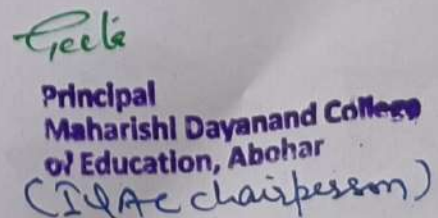 Geeta
Principal
Maharishi Dayanand College
of Education, Abohar
(IQAC chairperson)